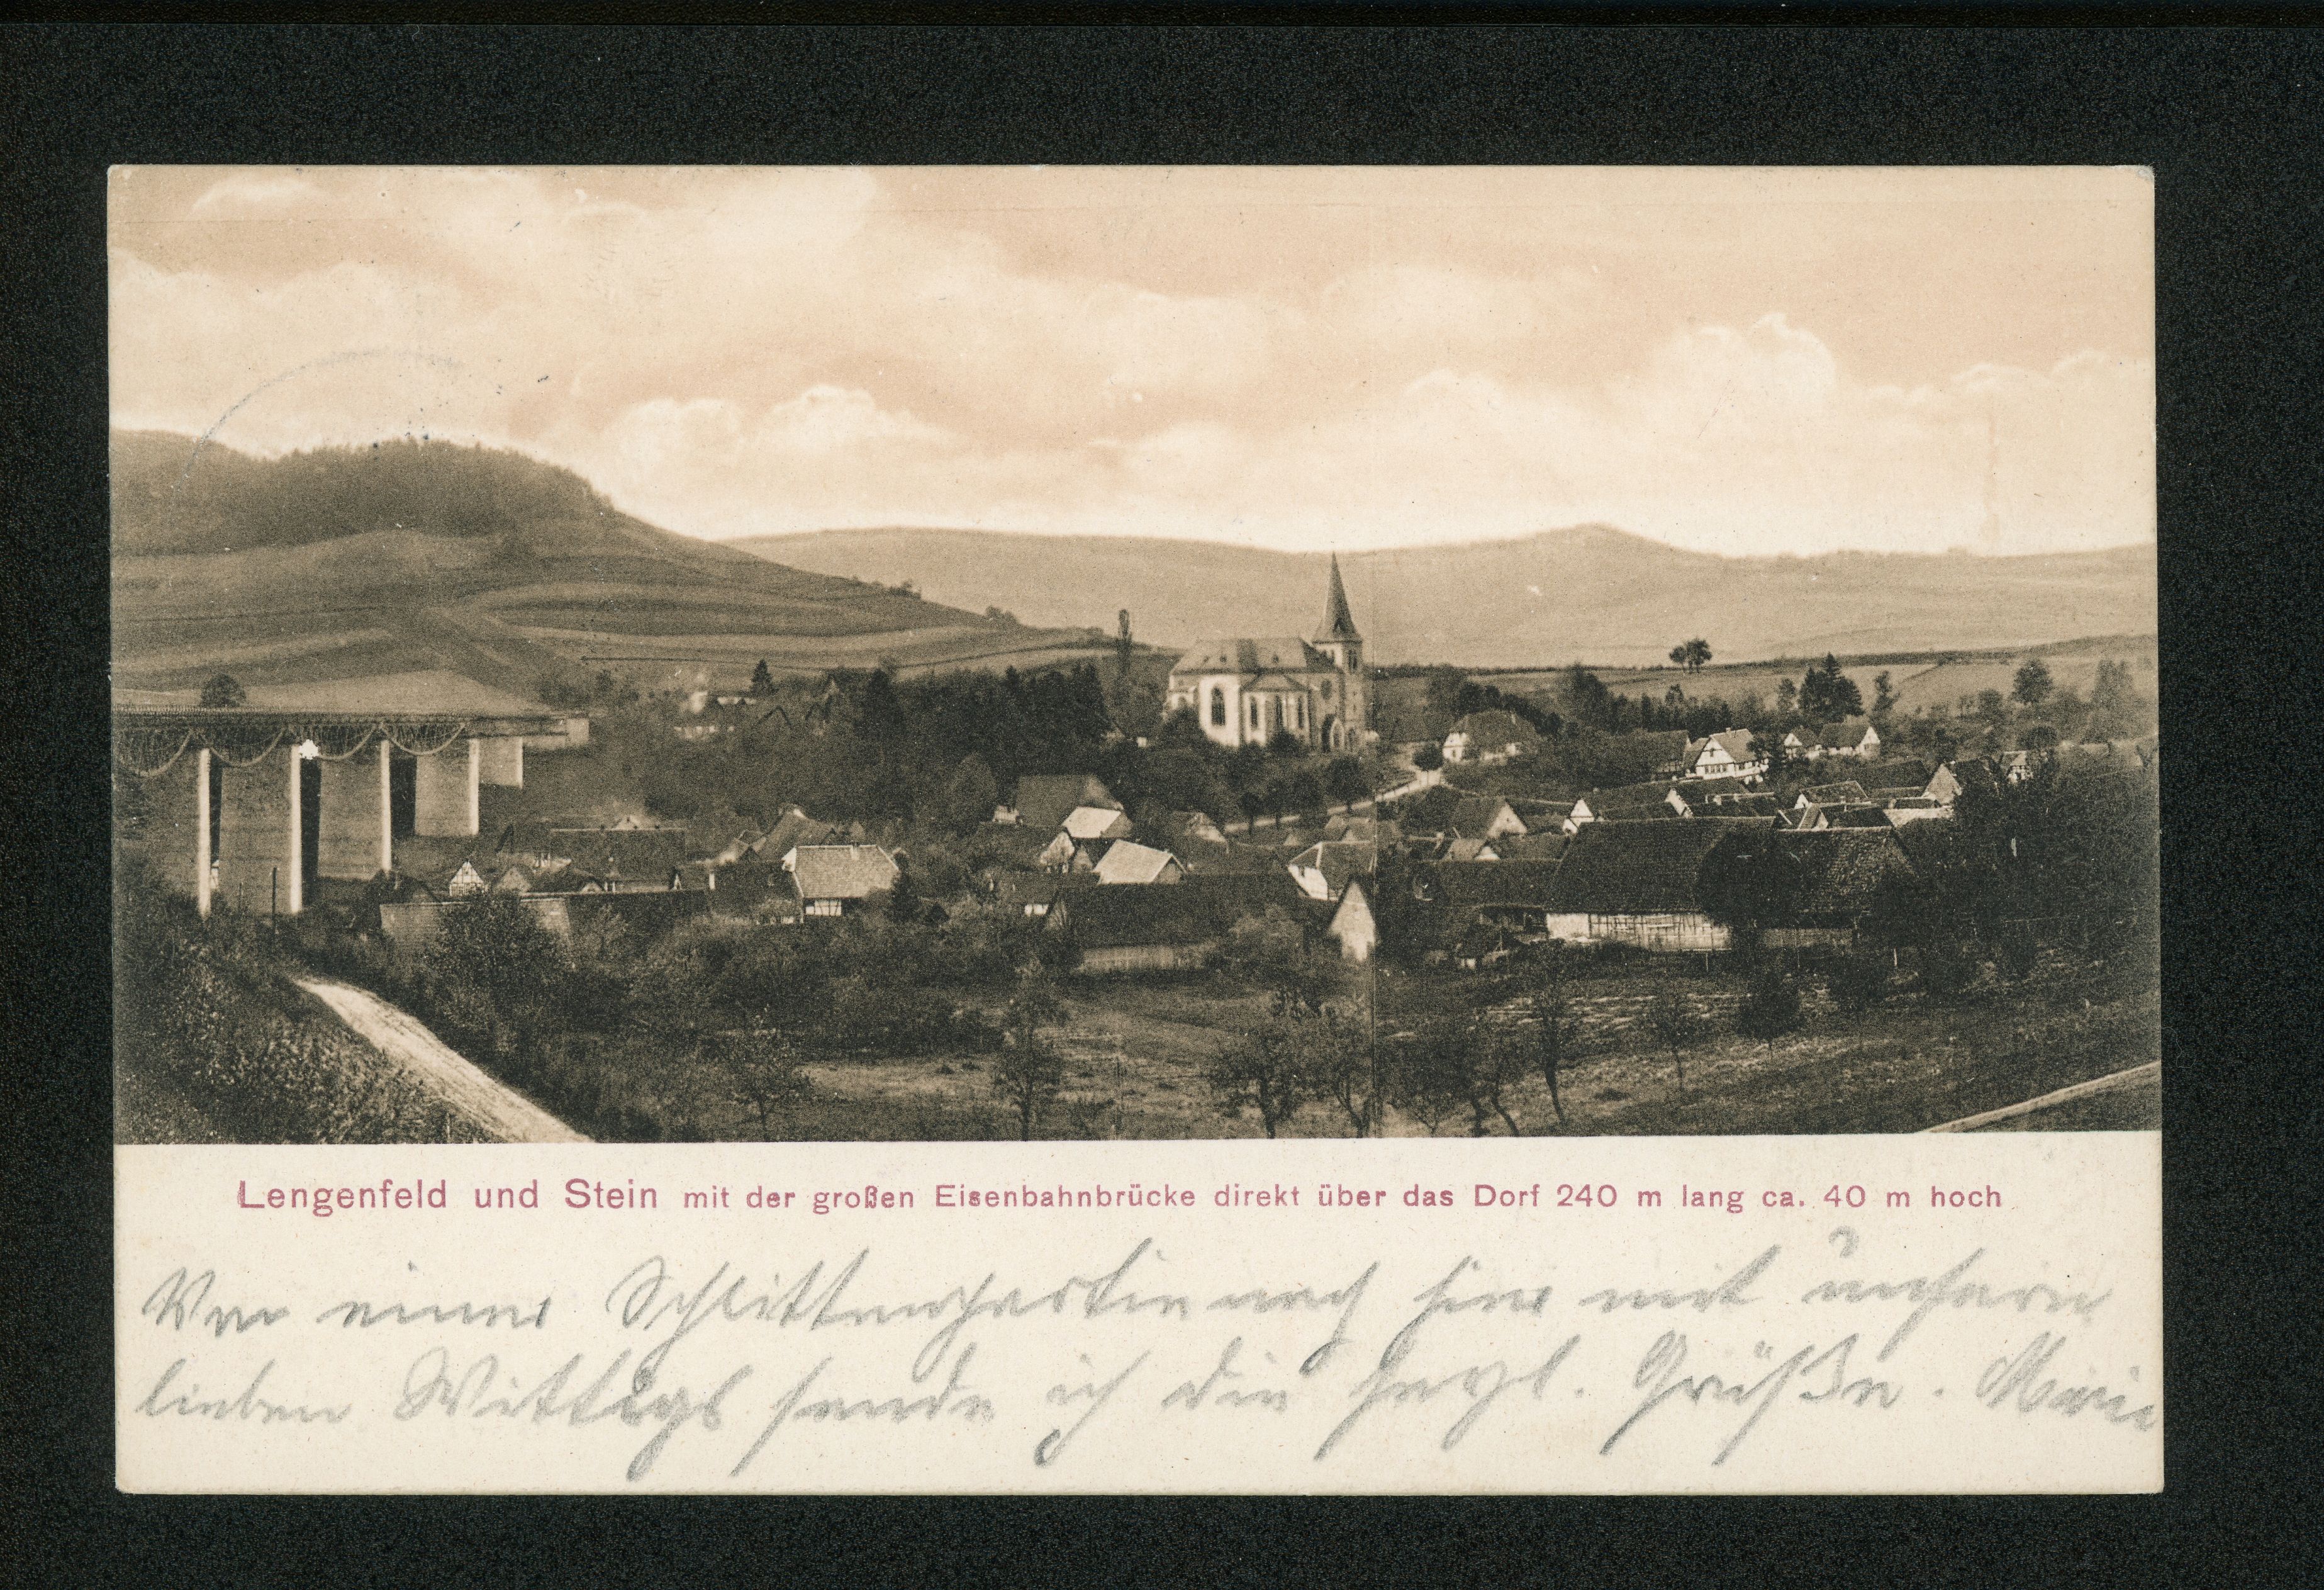 Lengenfeld und Stein mit der großen Eisenbahnbrücke direkt über das Dorf 240 m lang ca. 40 m hoch
Von einer Schlittenpartie nach hier mit unsern
lieben Wittigs sende ich die herzl. Grüße. Marie